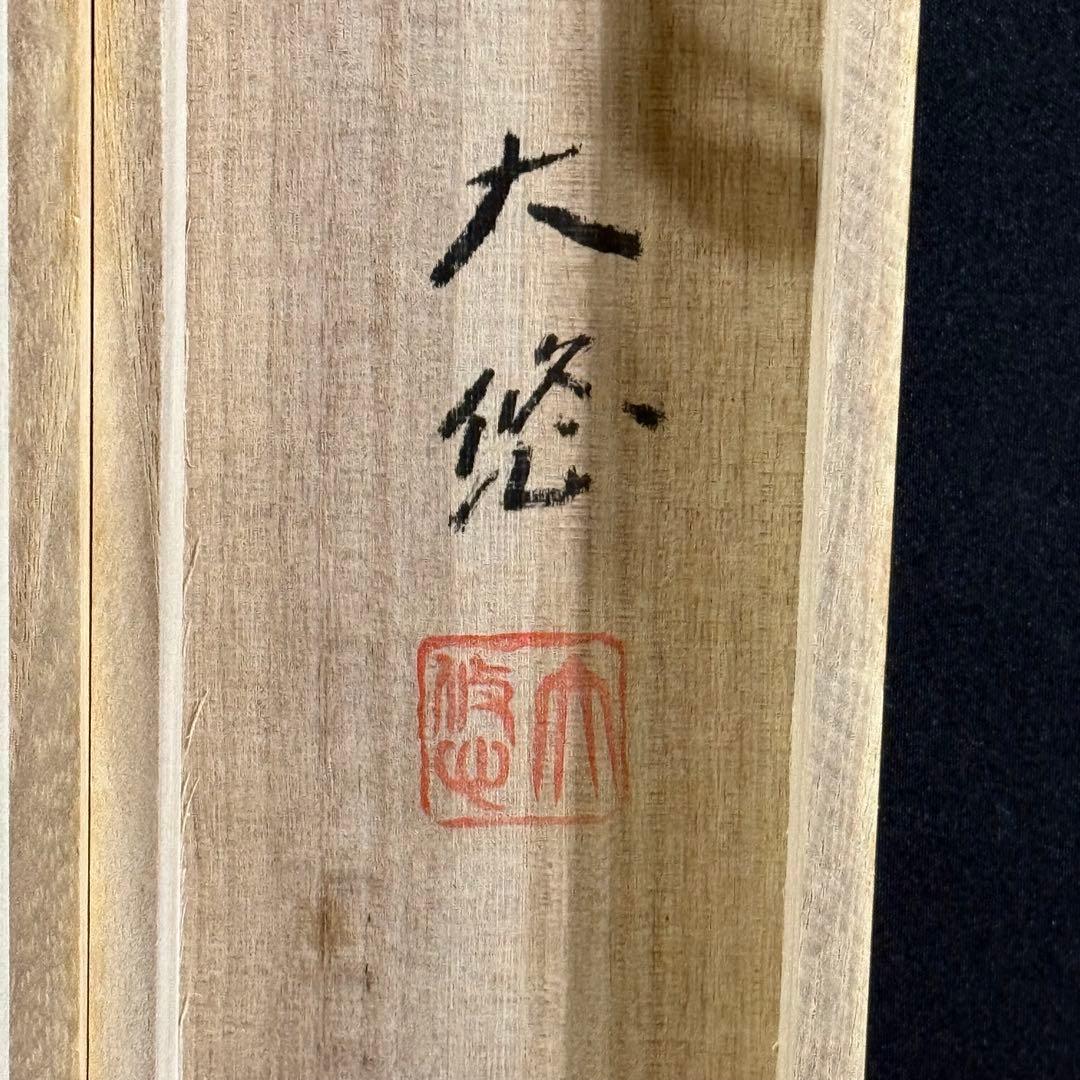 大悠
大悠